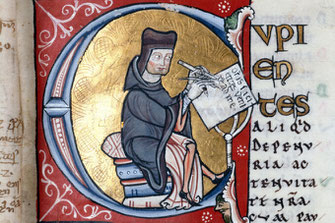 CUPI
EN
TES
ALIQD
DEPENV
RIA AC
TENVITA
TE NRA
CVM PAV